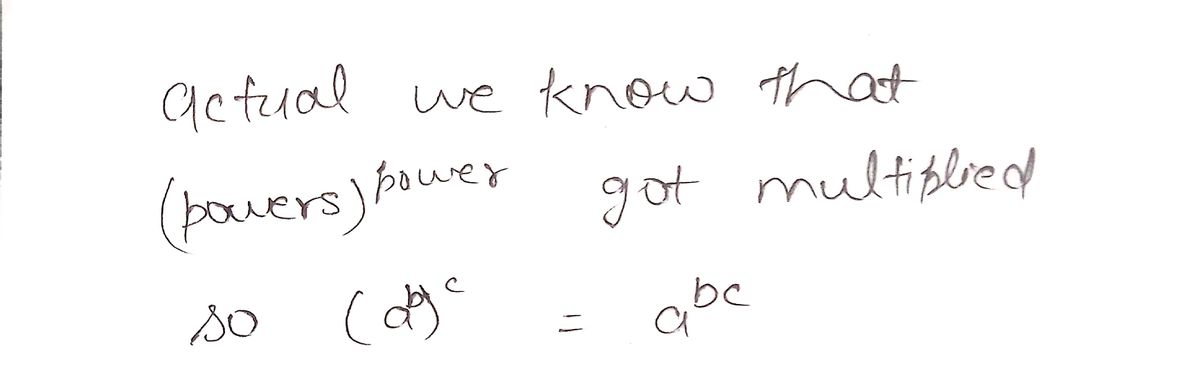 actual we know that
(powers)^power got multiplied
so (a^b)^c = a^bc